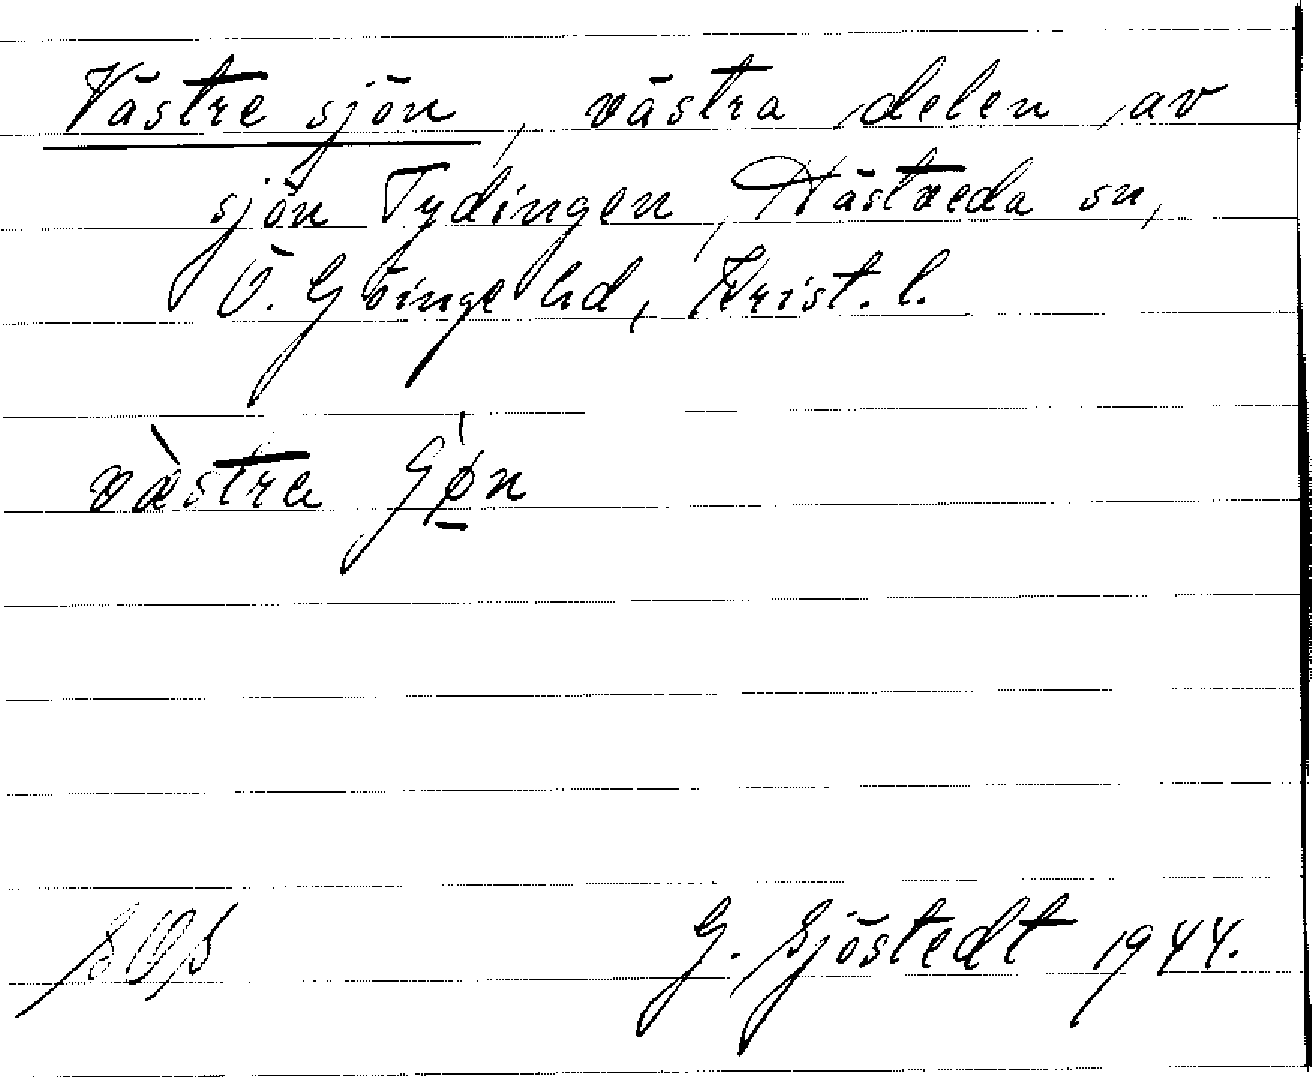 Västre sjön, västra delen av
sjön Tydingen, Nästveda sn,
Ö. Göinge hd, Krist. l.
væ̀stra
G. Sjöstedt 1944.